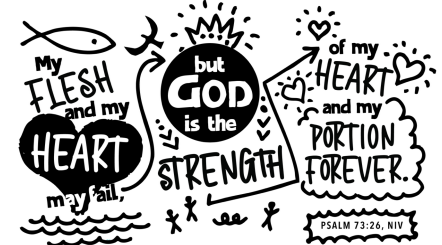 My
FLESH
and my
HEART
may fail,
but
GOD
is the
STRENGTH
of my
HEART
and my
PORTION
FOREVER.
PSALM 73:26, NIV